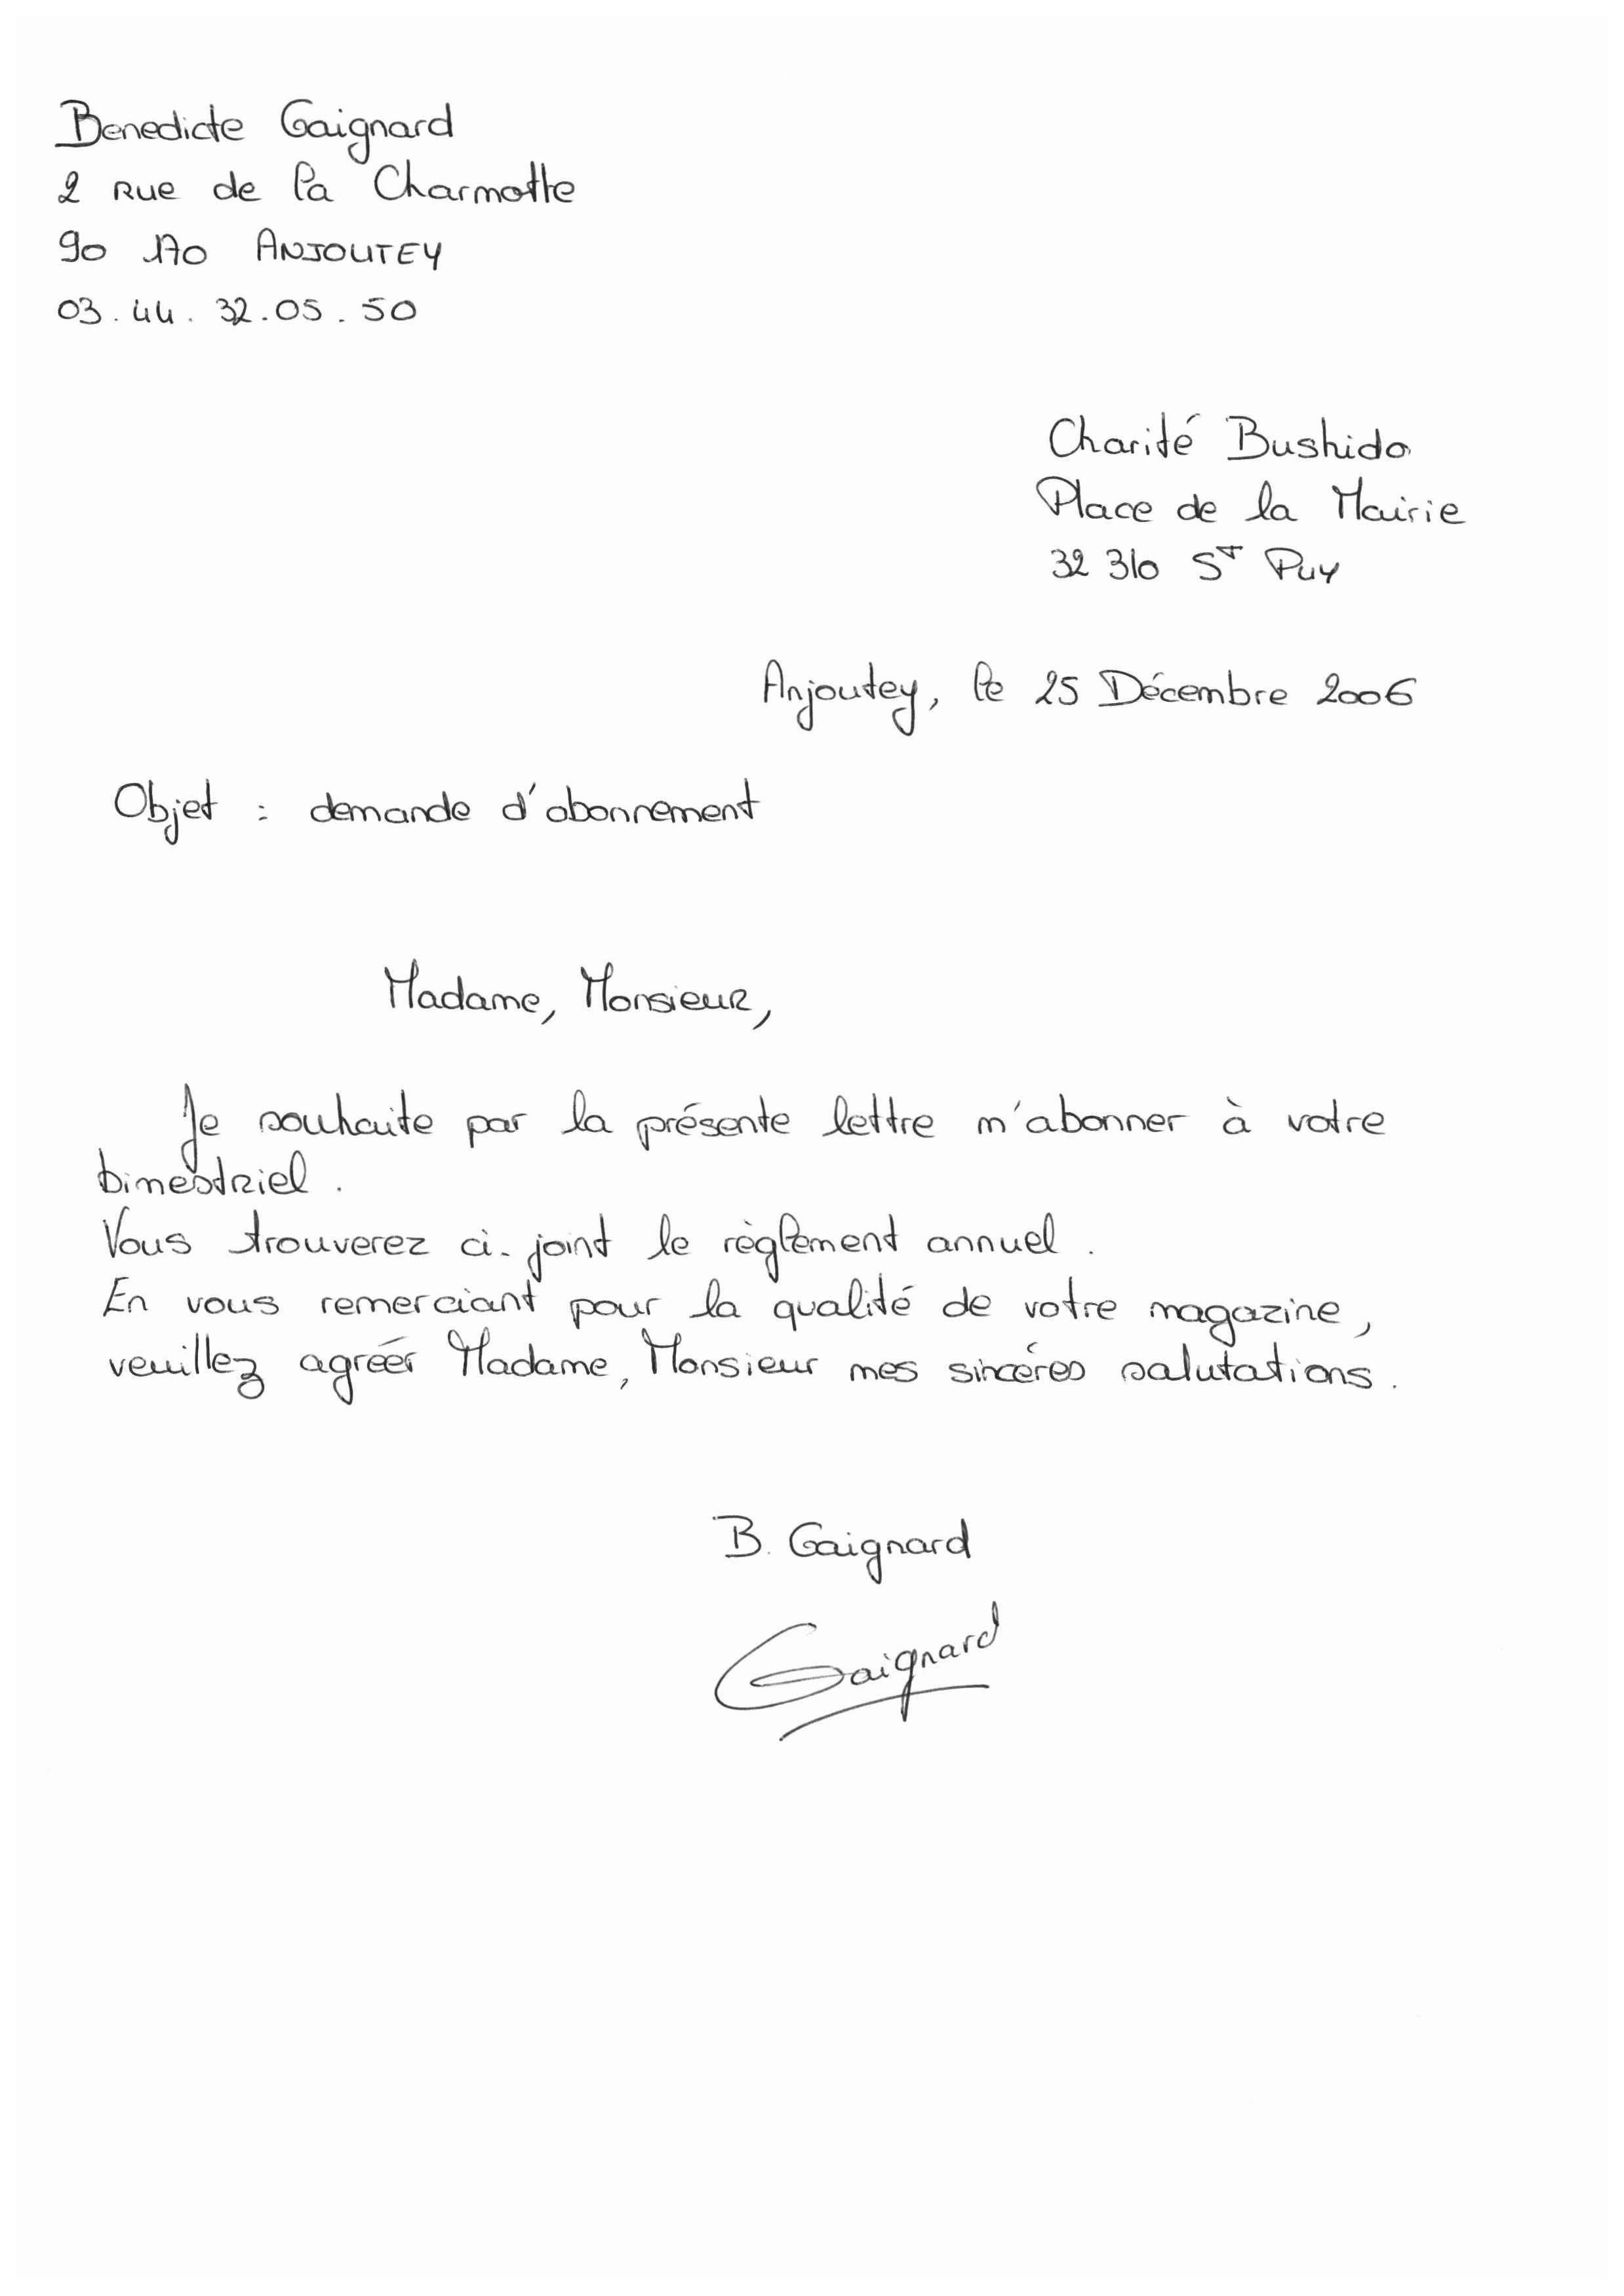 Benedicte Gaignard
2 Rue de la Charmotte
90 170 ANJOUTEY
03.44.32.05.50
Charité Bushido
Place de la Mairie
32 310 St Puy
Anjoutey, le 25 Décembre 2006
Objet : demande d'abonnement
Madame, Monsieur,
Je souhaite par la présente lettre m'abonner à votre
bimestriel.
Vous trouverez ci-joint le règlement annuel.
En vous remerciant pour la qualité de votre magazine,
veuillez agréer Madame, Monsieur mes sincéres salutations.
B. Gaignard
Gaignard